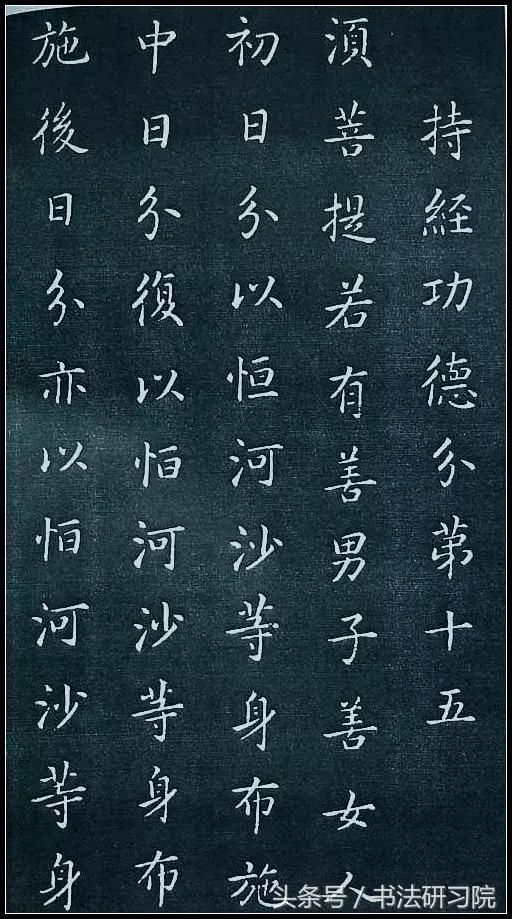 持經功德分第十五
須菩提若有善男子善女人
初日分以恒河沙等身布施
中日分復以恒河沙等身布
施後日分亦以恒河沙等身
头条号／书法研习院